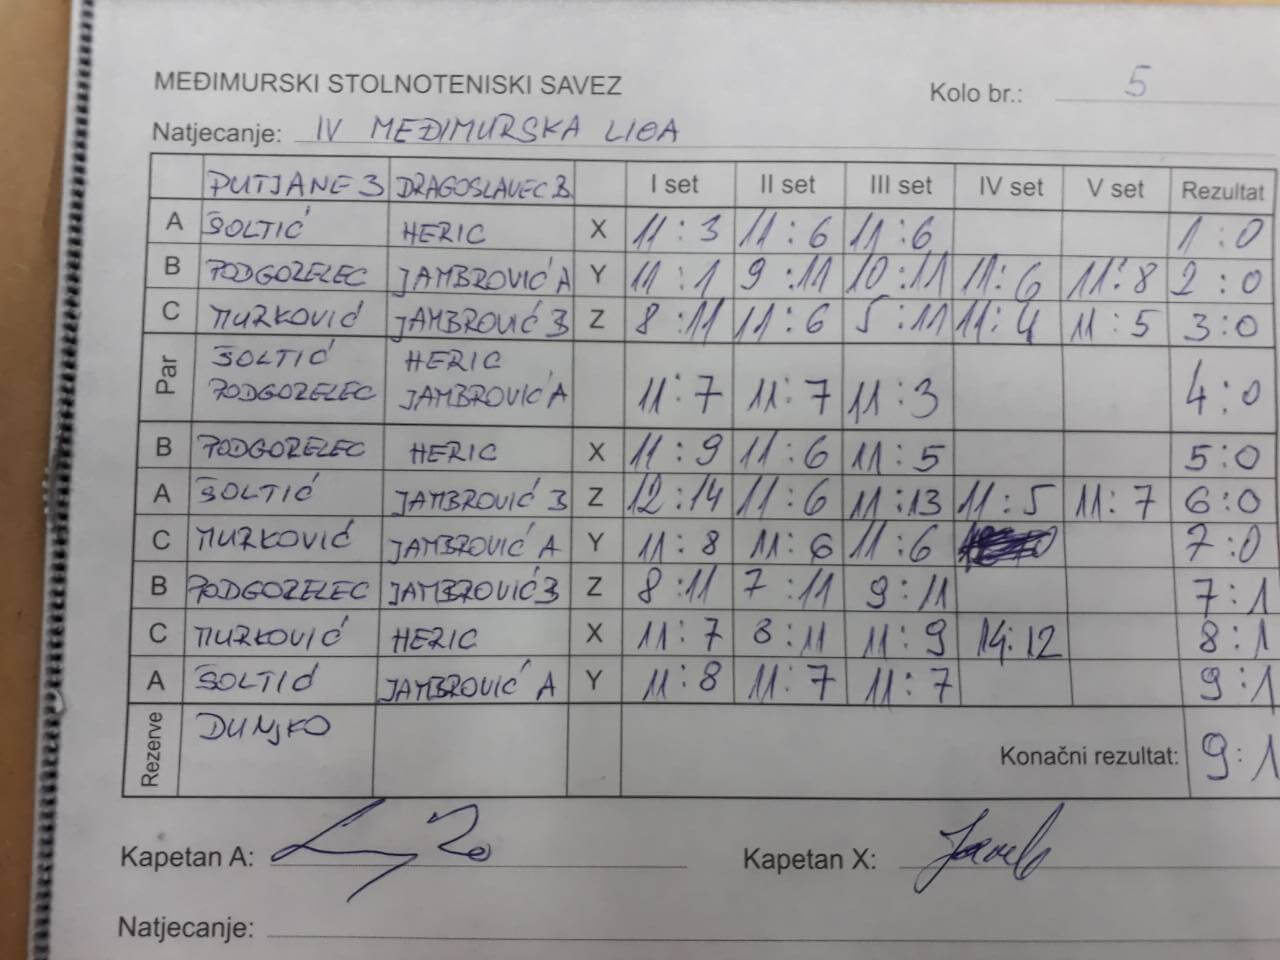 MEĐIMURSKI STOLNOTENISKI SAVEZ
Kolo br.: 5
Natjecanje: IV MEĐIMURSKA LIGA
PUTJANE 3 DRAGOSLAVEC B I set II set III set IV set V set Rezultat
A ŠOLTIĆ HERIC X 11:3 11:6 11:6 1:0
B PODGORELEC JAMBROVIĆ A Y 11:1 9:11 10:11 11:6 11:8 2:0
C MURKOVIĆ JAMBROVIĆ B Z 8:11 11:6 5:11 11:4 11:5 3:0
Par ŠOLTIĆ HERIC
PODGORELEC JAMBROVIĆ A 11:7 11:7 11:3 4:0
B PODGORELEC HERIC X 11:9 11:6 11:5 5:0
A ŠOLTIĆ JAMBROVIĆ B Z 12:14 11:6 11:13 11:5 11:7 6:0
C MURKOVIĆ JAMBROVIĆ A Y 11:8 11:6 11:6 7:0
B PODGORELEC JAMBROVIĆ B Z 8:11 7:11 9:11 7:1
C MURKOVIĆ HERIC X 11:7 8:11 11:9 14:12 8:1
A ŠOLTIĆ JAMBROVIĆ A Y 11:8 11:7 11:7 9:1
Rezerve DUNJKO Konačni rezultat: 9:1
Kapetan A: Kapetan X:
Natjecanje: